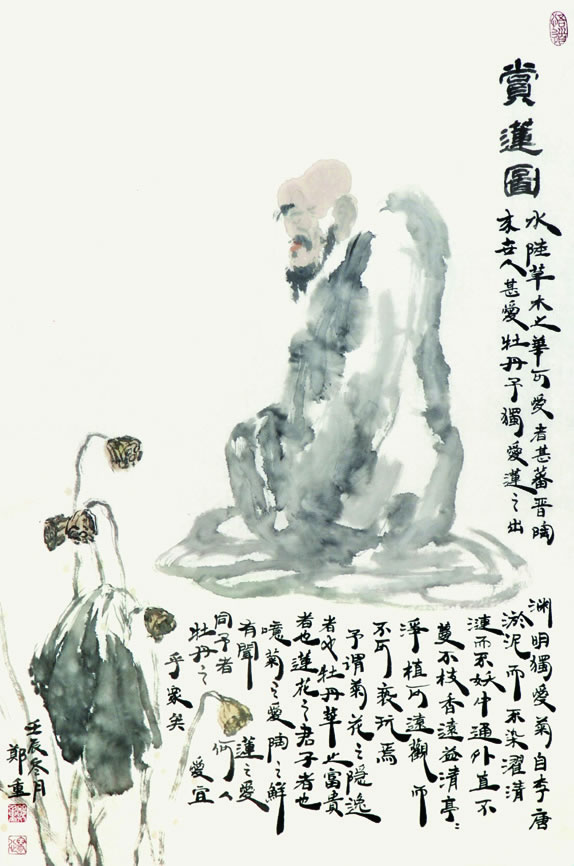 賞蓮圖
水陸草木之華可愛者甚蕃晉陶淵明獨愛菊自李唐
來世人甚愛牡丹予獨愛蓮之出淤泥而不染濯清
漣而不妖中通外直不
蔓不枝香遠益清亭〻
淨植可遠觀而
不可褻玩焉
予謂菊花之隱逸
者也牡丹華之富貴
者也蓮花之君子者也
噫菊之愛陶之鮮
有聞蓮之愛
同予者何人
牡丹之愛宜
乎眾矣
壬辰冬月
鄭重